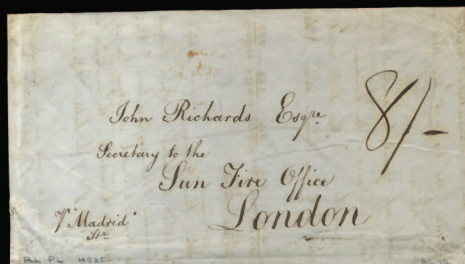 John Richards Esqre
8/-
Secretary to the
Sun Fire Office
London
"Madrid"
Str